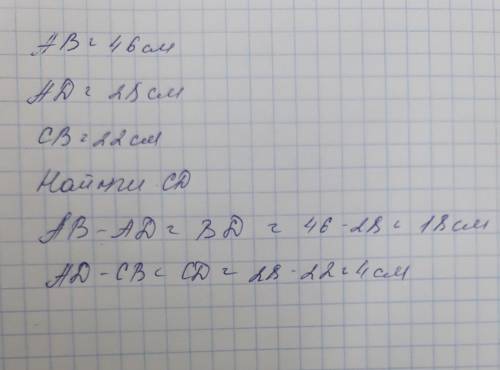 AB = 46 см
AD = 28 см
CB = 22 см
Найти CD
AB - AD = BD = 46 - 28 = 18 см
AD - CB = CD = 28 - 22 = 4 см